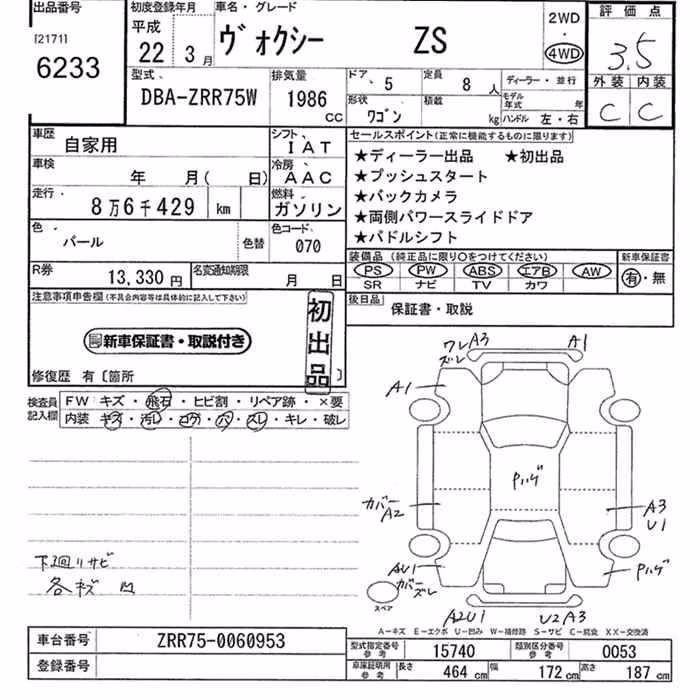 出品番号
[2171]
6233
初度登録年月
平成
22 3月
車名・グレード
ヴォクシー ZS
2WD
・
4WD
評価点
3.5
外装 内装
C C
型式
DBA-ZRR75W
排気量
1986
cc
ドア 5
定員 8人
ディーラー・並行
形状
ワゴン
積載
kg
モデル年式 年
ハンドル 左・右
車歴
自家用
シフト
IAT
車検
年 月( 日)
冷房
AAC
走行
8万6千429 km
燃料
ガソリン
色
パール
色替
色コード
070
R券
13,330円
名変通知期限
月 日
セールスポイント(正常に機能するものに限ります)
★ディーラー出品 ★初出品
★プッシュスタート
★バックカメラ
★両側パワースライドドア
★パドルシフト
装備品(純正品に限り○をつけてください)
新車保証書
PS PW ABS エアB AW
SR ナビ TV カワ
有・無
後日品
保証書・取説
注意事項申告欄(不具合内容等は具体的に記入して下さい)
新車保証書・取説付き
初出品
修復歴 有〔箇所 〕
検査員記入欄
FW キズ・飛石・ヒビ割・リペア跡・×要
内装 キズ・汚レ・コゲ・穴・スレ・キレ・破レ
下廻リサビ
各キズ凹
ワレ A3
ズレ
A1
A1
Pハゲ
カバー
A2
A3
U1
AU1
カバーズレ
Pハゲ
スペア
A2U1
U2A3
A-キズ E-エクボ U-凹み W-補修跡 S-サビ C-腐食 XX-交換済
車台番号
ZRR75-0060953
登録番号
型式指定番号
参考
15740
類別区分番号
参考
0053
車庫証明用
参考
長さ 464cm
幅 172cm
高さ 187cm